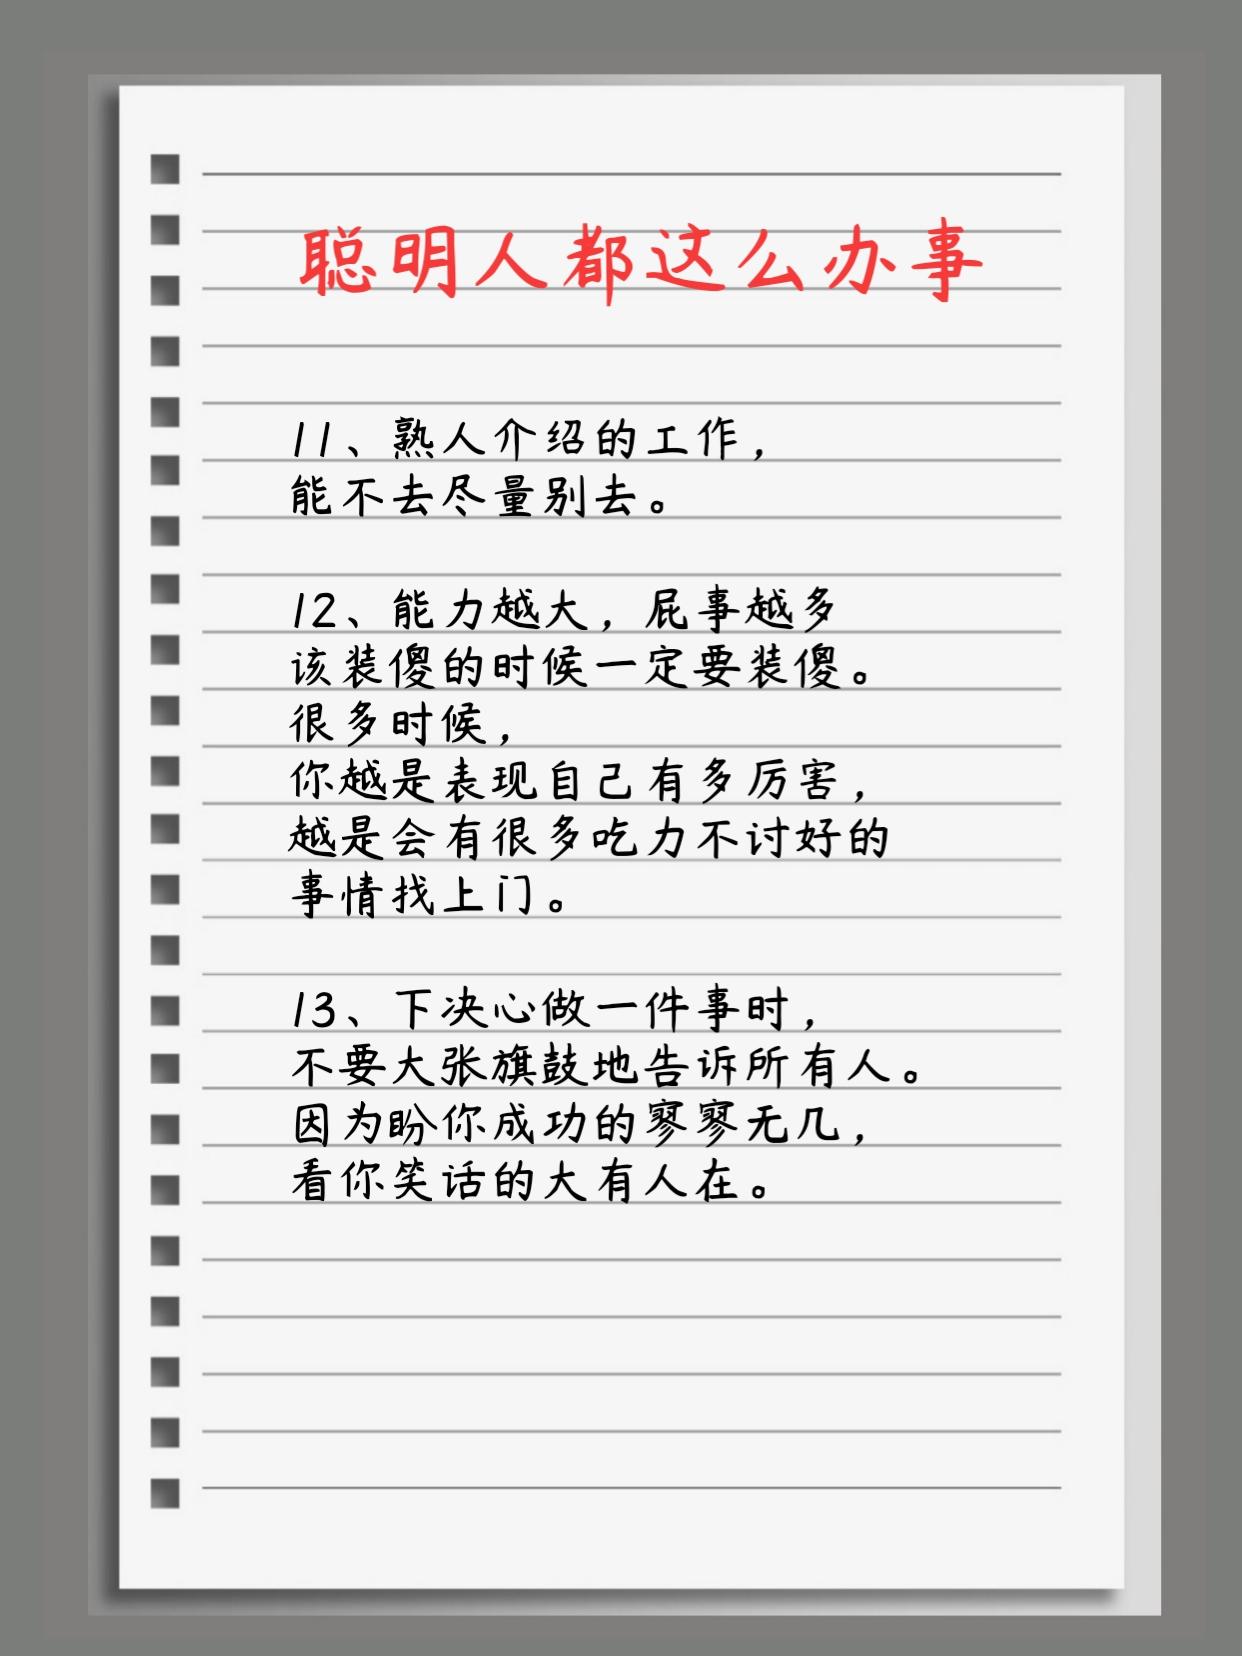 聪明人都这么办事
11、熟人介绍的工作，
能不去尽量别去。
12、能力越大，屁事越多
该装傻的时候一定要装傻。
很多时候，
你越是表现自己有多厉害，
越是会有很多吃力不讨好的
事情找上门。
13、下决心做一件事时，
不要大张旗鼓地告诉所有人。
因为盼你成功的寥寥无几，
看你笑话的大有人在。